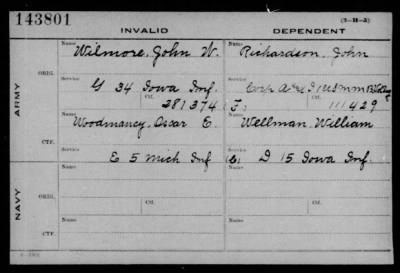 143801
(3-II-A)
INVALID DEPENDENT
ARMY
ORIG.
Name Wilmore, John W. Name Richardson, John
Service G 34 Iowa Inf. Service Corp
Ctf. 281374 Ctf. 111429
CTF.
Name Woodmancy, Oscar E. Name Wellman, William
Service E 5 Mich Inf Service D 15 Iowa Inf.
NAVY
ORIG.
Name Name
Ctf. Ctf.
CTF.
Name Name